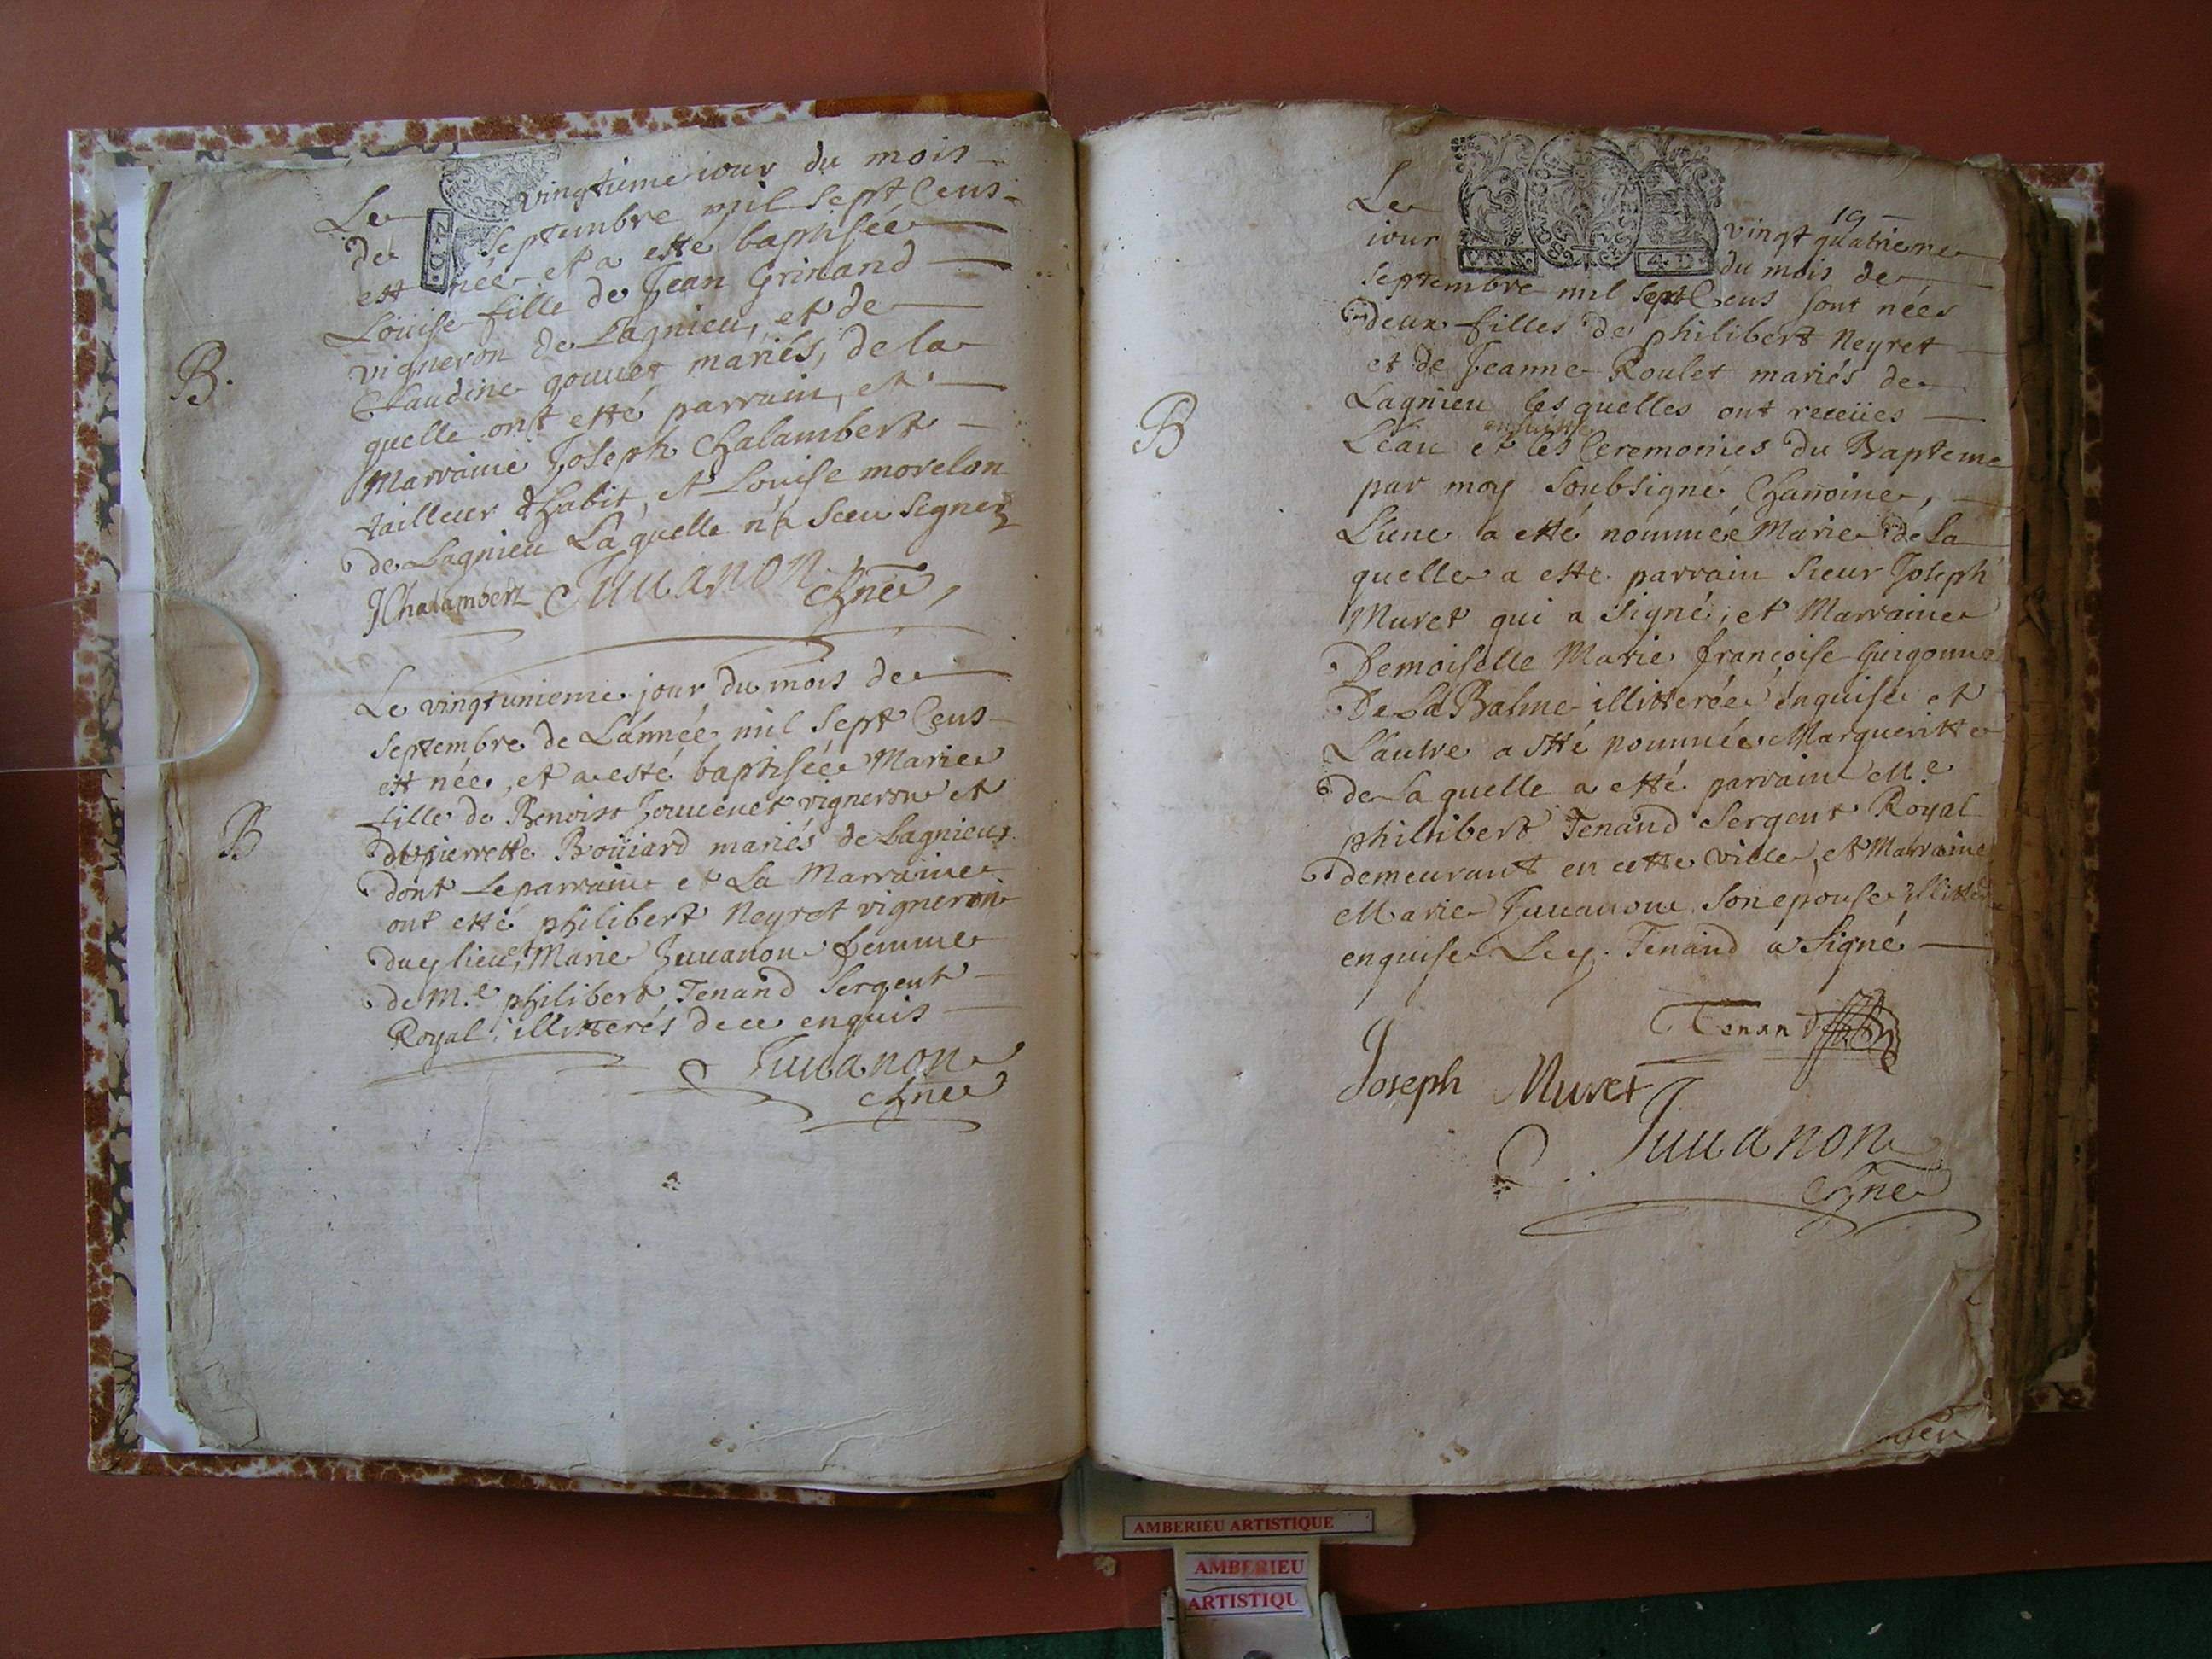 Le vingtieme iour du mois
de Septembre mil Sept Cens
est née et a esté baptisée
Louise fille de Jean Grinand
vigneron de Lagnieu, et de
Claudine gouuet mariés, de la
B.
quelle ont etté parrain, et
Marraine Joseph Chalambert
tailleur dhabit, et Louise morelon
de Lagnieu La quelle n'a sceu signer
JChalambert Juuanon chne
Le vingtunieme jour du mois de
Septembre de L'année mil Sept Cens
est née, et a esté baptisée Marie
fille de Benoist vigneron et
B
de pierrette Boüiard mariés de Lagnieu
dont Le parrain et La Marraine
ont etté philibert Neyret vigneron
duy lieu, et Marie Juuanon femme
de M.e philibert Tenand Sergent
Royal, illitterés de ce enquis
Juuanon
chne
19
Le vingt quatrieme
iour du mois de
Septembre mil Sept Cens sont nées
deux filles de philibert Neyret
et de Jeanne Roulet mariés de
Lagnieu les quelles ont receües
ensuitte
B
L'eau et les Ceremonies du Bapteme
par moy Soubsigné Chanoine,
L'une a etté nommée Marie de la
quelle a esté parrain sieur Joseph
Muret qui a signé, et Marraine
Demoiselle Marie françoise
De La Balme illitterée enquise et
L'autre a etté nommée Margueritte
de La quelle a etté parrain M.e
philibert Tenand Sergent Royal
demeurant en cette ville, et Marraine
Marie Juuanon son epouse
enquise Ley. Tenand a signé
Tenand
Joseph Muret
Juuanon
chne
AMBERIEU ARTISTIQUE
AMBERIEU
ARTISTIQU